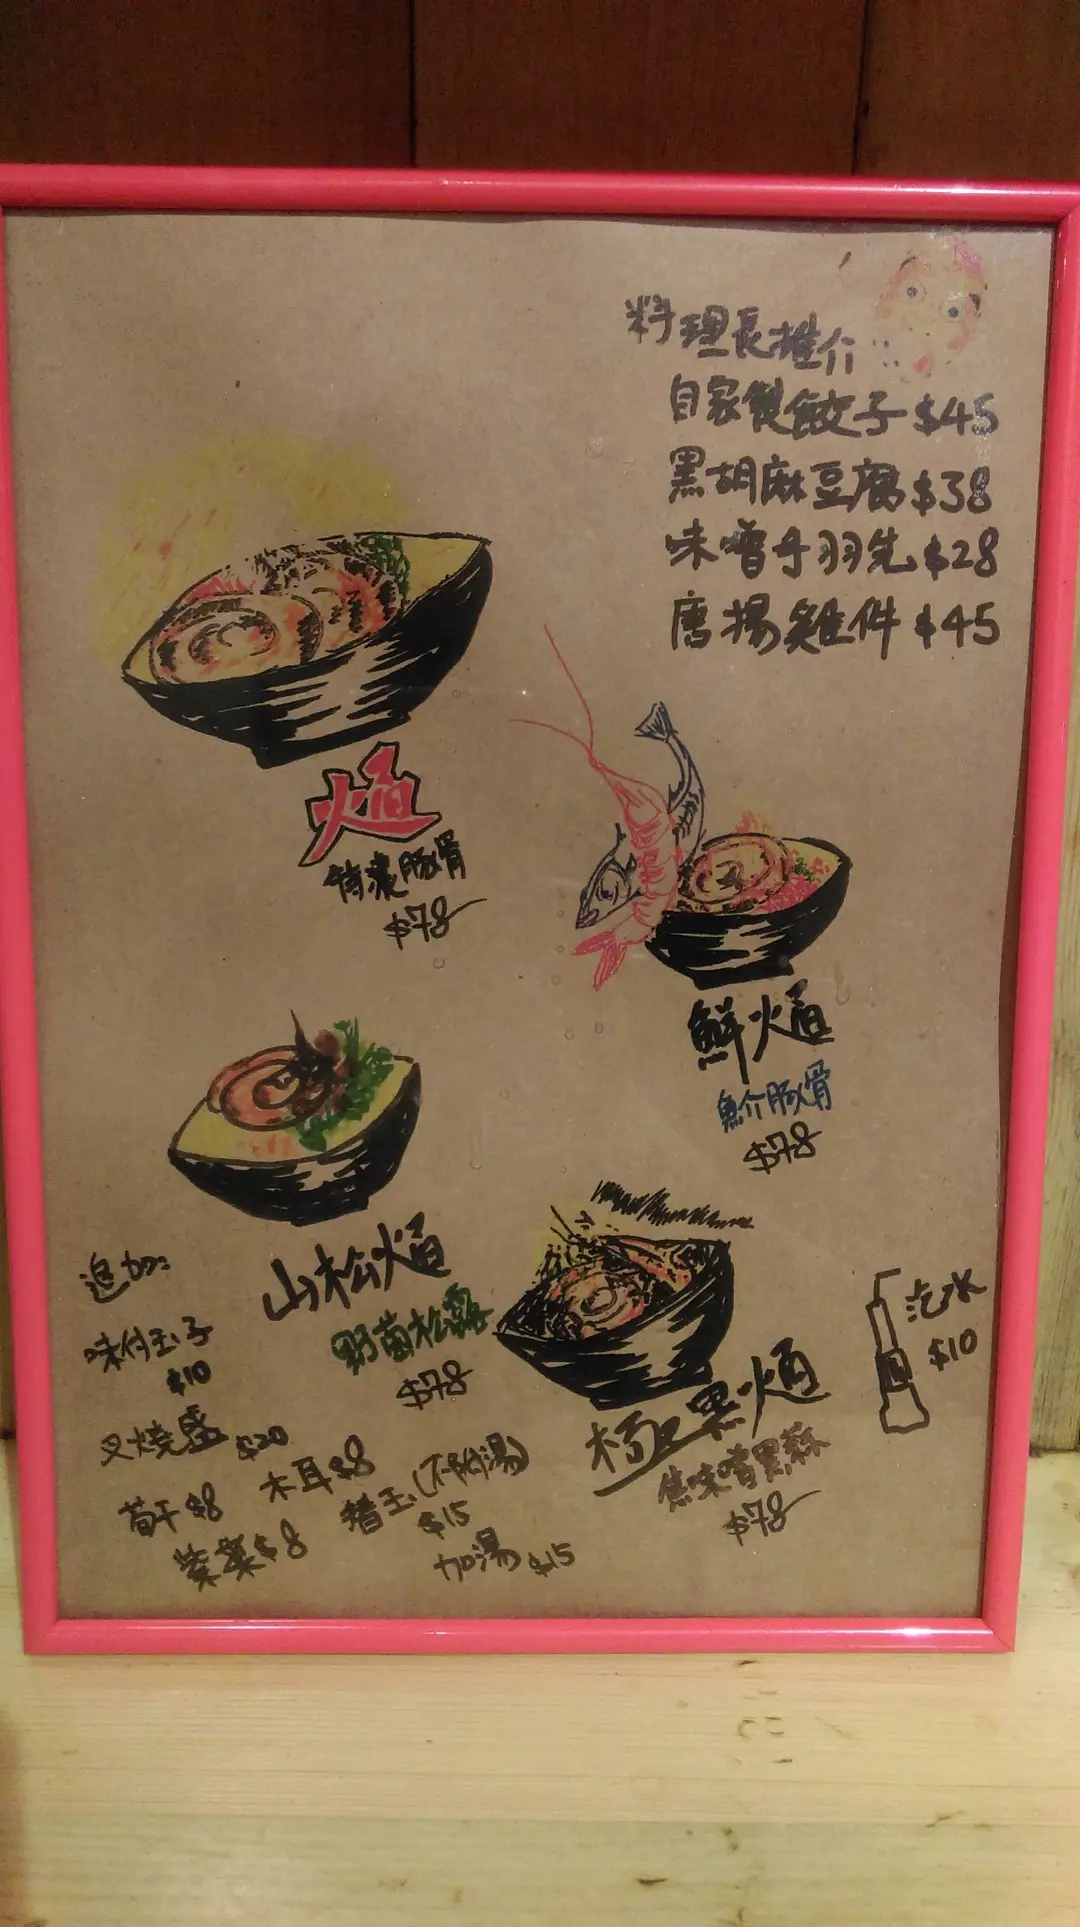 料理長推介:
自家製餃子 $45
黑胡麻豆腐 $38
味噌手羽先 $28
唐揚雞件 $45
焰
特濃豚骨
$78
鮮焰
魚介豚骨
$78
山松焰
野菌松露
$78
極黑焰
焦味噌黑蒜
$78
汽水
$10
追加:
味付玉子
$10
叉燒盛 $20
木耳 $8
筍干 $8
紫菜 $8
替玉(不附湯)
$15
加湯 $15